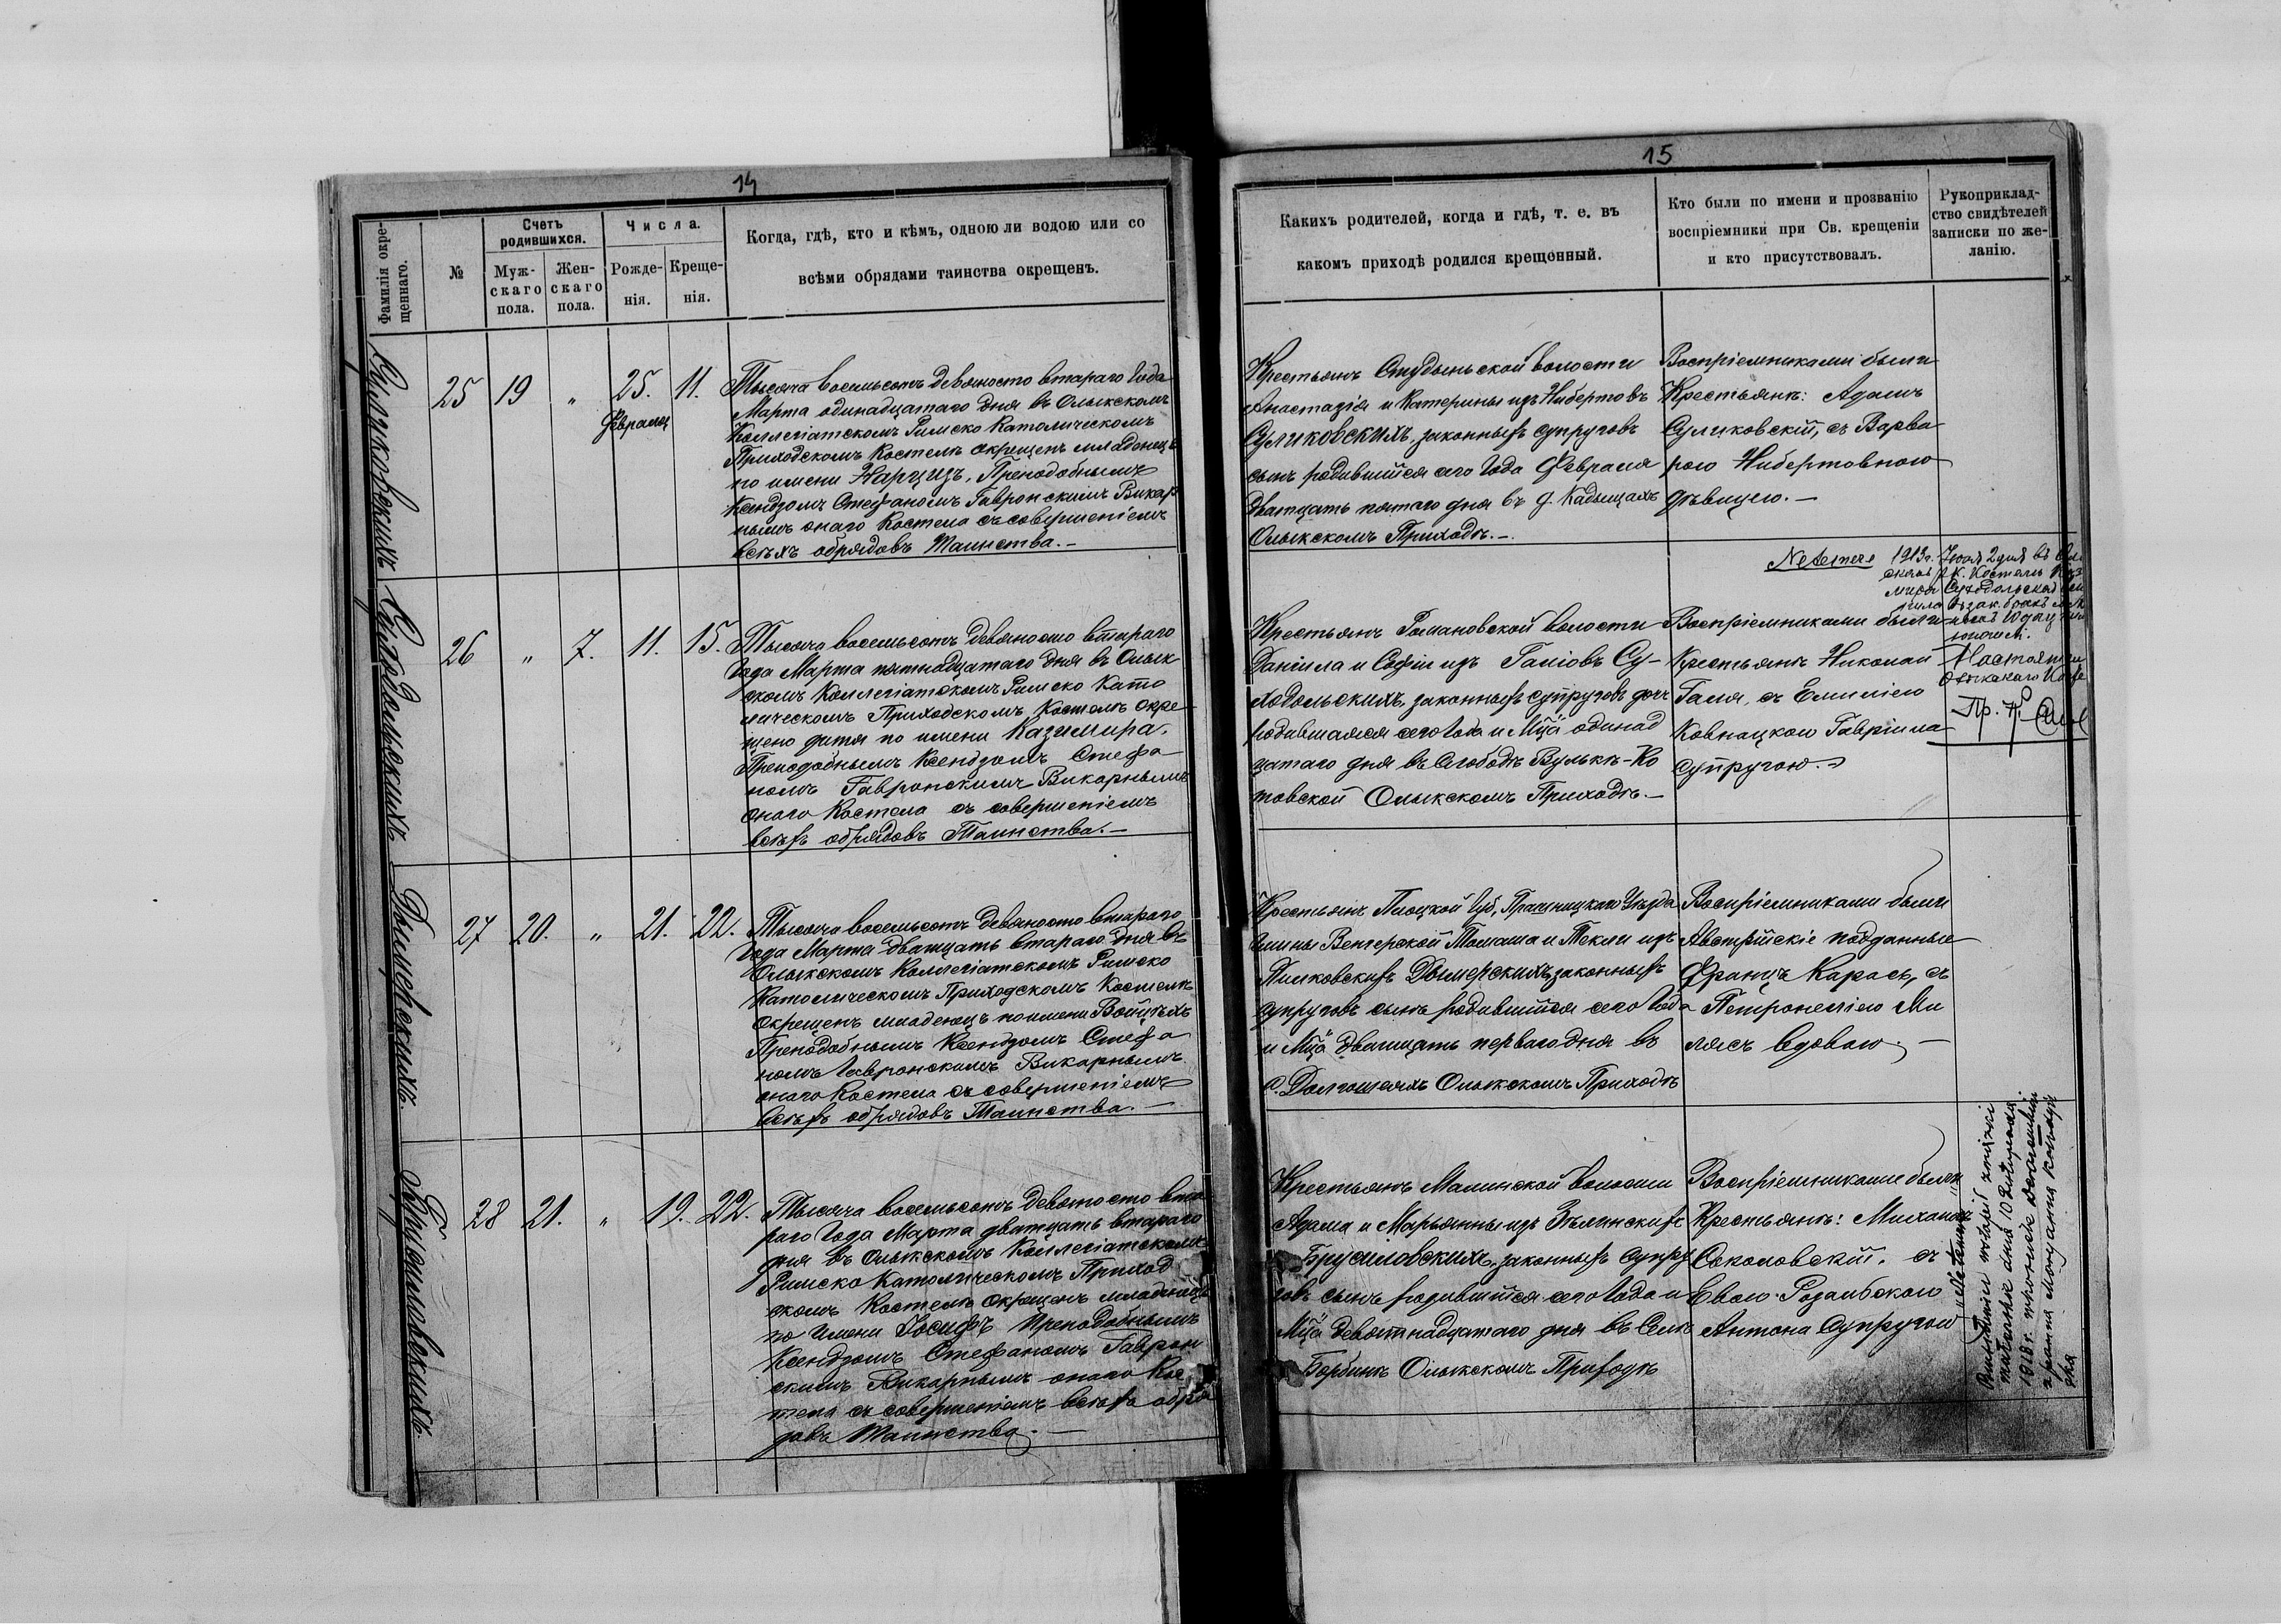 14
Фамилія окре-
щеннаго.
№
Счетъ
родившихся.
Муж-
скаго
пола.
Жен-
скаго
пола.
Числа.
Рожде-
нія.
Креще-
нія.
Когда, гдѣ, кто и кѣмъ, одною ли водою или со
всѣми обрядами таинства окрещенъ.
Суликовскихъ
25 19 " 25. 11.
Февраля
Тысяча восемьсотъ девяносто втараго Года
Марта одинадцатаго дня въ Олыкскомъ
Коллегіатскомъ Римско Католическомъ
Приходскомъ Костелѣ окрещенъ младенецъ
по имени Нарцизъ, Преподобнымъ
Ксендзомъ Стефаномъ Гавронскимъ Викар
нымъ онаго Костела съ совершеніемъ
всѣхъ обрядовъ Таинства.-
Суходольскихъ
26 " 7. 11. 15.
Тысяча восемьсотъ девяносто втараго
Года Марта пятнадцатаго дня въ Олык
скомъ Коллегіатскомъ Римско Като
лическомъ Приходскомъ Костелѣ окре
щено дитя по имени Казимира,
Преподобнымъ Ксендзомъ Стефа
номъ Гавронскимъ Викарнымъ
онаго Костела съ совершеніемъ
всѣхъ обрядовъ Таинства.-
Дымерскихъ.
27 20. " 21. 22.
Тысяча восемьсотъ девяносто втараго
Года Марта дватцать втараго дня въ
Олыкскомъ Коллегіатскомъ Римско
Католическомъ Приходскомъ Костелѣ
окрещенъ младенецъ по имени Войцѣхъ
Преподобнымъ Ксендзомъ Стефа
номъ Гавронскимъ Викарнымъ
онаго Костела съ совершеніемъ
всѣхъ обрядовъ Таинства.-
Брусиловскихъ.
28 21. " 19. 22.
Тысяча восемьсотъ девяносто вта
раго Года Марта дватцать втараго
дня въ Олыкскомъ Коллегіатскомъ
Римско Католическомъ Приход
скомъ Костелѣ окрещенъ младенецъ
по имени Іосифъ Преподобнымъ
Ксендзомъ Стефаномъ Гаврон
скимъ Викарнымъ онаго Кос
тела съ совершеніемъ всѣхъ обря
довъ Таинства.-
15
Какихъ родителей, когда и гдѣ, т. е. въ
какомъ приходѣ родился крещенный.
Кто были по имени и прозванію
воспріемники при Св. крещеніи
и кто присутствовалъ.
Рукоприклад-
ство свидѣтелей
записки по же-
ланію.
Крестьянъ Студыньской волости
Анастазія и Катерины изъ Нибертовъ
Суликовскихъ, законныхъ супруговъ
сынъ родившійся сего Года Февраля
дватцать пятаго дня въ д. Кадыщахъ
Олыкскомъ Приходѣ.-
Воспріемниками были
Крестьянѣ: Адамъ
Суликовскій, съ Варва
рою Нибертовною
дѣвицею.-
Крестьянъ Романовской волости
Даніила и Софіи изъ Галіовъ Су-
ходольскихъ, законныхъ супруговъ дочь
родившаяся сего Года и Мца одинад
цатаго дня въ Слободѣ Вулькѣ-Ко
товской Олыкскомъ Приходѣ.-
Воспріемниками были
Крестьянѣ Николай
Галя, съ Емиліею
Ковнацкою Гавріила
Супругою.
Ne temere 1913г. 2 дня въ
Р. К. Костелѣ
Суходольская
зак. бракъ
Пр.
Крестьянъ Плоцкой Губ, Прасницкаго Уѣзда
Гмины Венгерской Томаша и Текли изъ
Пилковскихъ Дымерскихъ, законныхъ
супруговъ сынъ родившійся сего Года
и Мца дватцать перваго дня въ
с. Долгошеяхъ Олыкскомъ Приходѣ
Воспріемниками были
Австрійскіе подданные
Францъ Карась, съ
Петронеліею Ми
лясъ вдовою.-
Крестьянъ Малинской волости
Адама и Марьянны изъ Зѣлинскихъ
Брусиловскихъ, законныхъ супру
говъ сынъ родившійся сего Года и
Мца девятнадцатаго дня въ Селѣ
Борбинѣ Олыкскомъ Приходѣ
Воспріемниками были
Крестьянѣ: Михаилъ
Соколовскій, съ
Евою
Антона Супругою
„Ne temere"